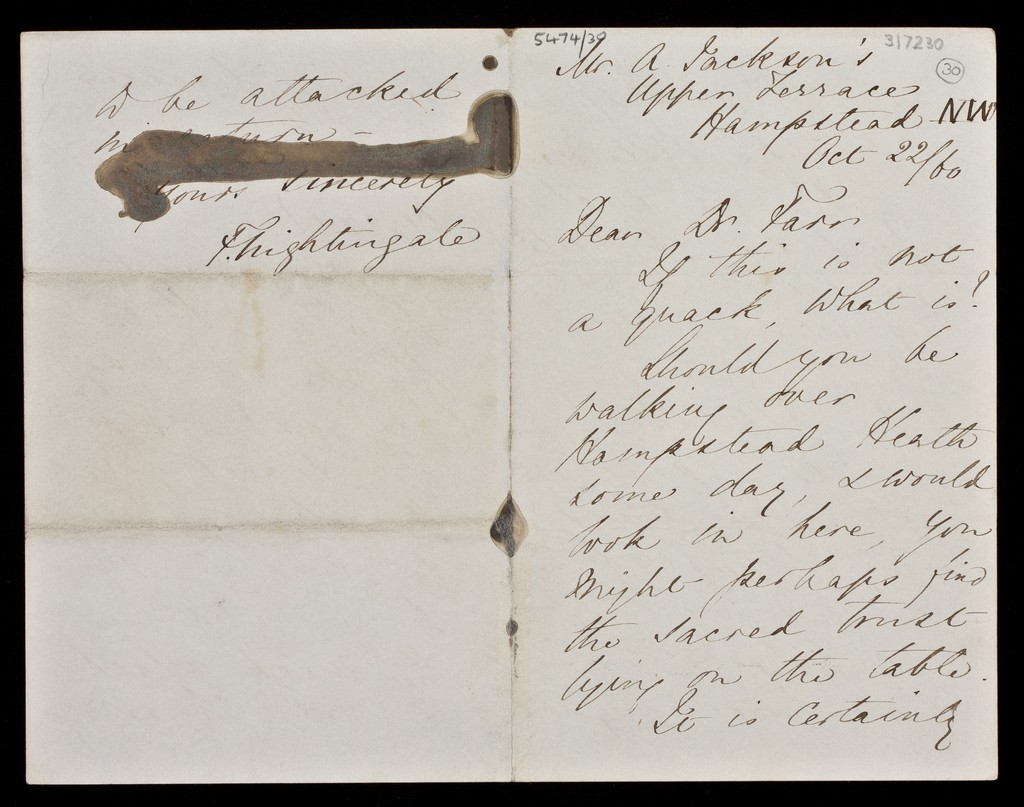 5474/39
317230
30
Mr. A. Jackson's
Upper Terrace
Hampstead NW
Oct 22/60
Dear Dr. Farr
If this is not
a quack, what is?
Should you be
walking over
Hampstead Heath
some day, & would
look in here, you
might perhaps find
the sacred trust
lying on the table.
It is certainly
be attacked
in return –
Yours sincerely
F. Nightingale